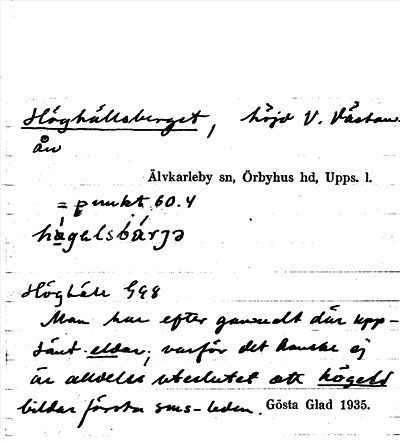 Höghällsberget, höjd V. Västan-
ån
Älvkarleby sn, Örbyhus hd, Upps. l.
= punkt 60.4
hǫ́gɑlsbárjə
Höghäll G98
Man har efter gammalt där upp-
tänt eldar, varför det kanske ej
är alldeles uteslutet att högeld
bildar första sms-leden. Gösta Glad 1935.